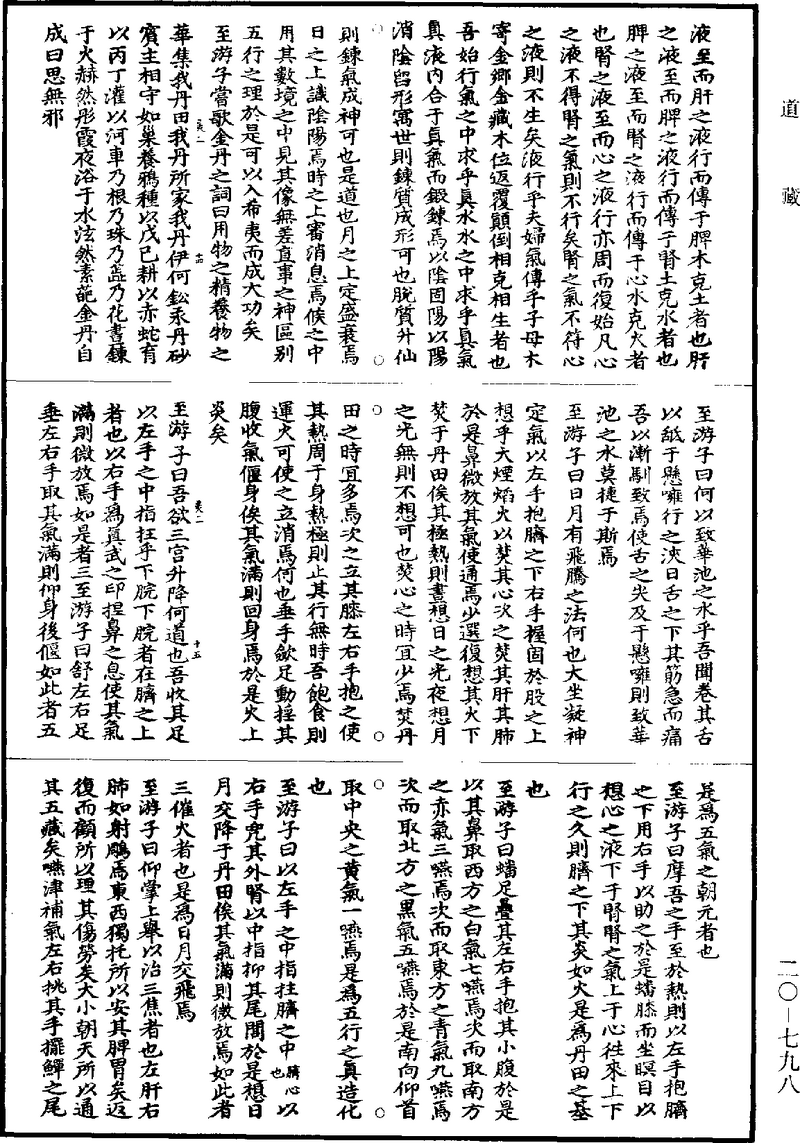 道藏
液至而肝之液行而傳于脾木克土者也肝
之液至而脾之液行而傳于腎土克水者也
脾之液至而腎之液行而傳于心水克火者
也腎之液至而心之液行亦周而復始凡心
之液不得腎之氣則不行矣腎之氣不符心
之液則不生矣液行乎夫婦氣傳乎子母木
寄金鄉金藏木位返覆顛倒相克相生者也
吾始行氣之中求乎眞水水之中求乎眞氣
眞液内合于眞氣而鍛鍊焉以陰固陽以陽
消陰留形寓世則鍊質成形可也脫質升仙
則鍊氣成神可也是道也月之上定盛衰焉
日之上識陰陽焉時之上審消息焉候之中
用其數境之中見其像無差直事之神區別
五行之理於是可以入希夷而成大功矣
至游子嘗歌金丹之詞曰用物之精養物之
華集我丹田我丹所家我丹伊何鈆汞丹砂
賓主相守如巢養鴉種以戊己耕以赤蛇有
以丙丁灌以河車乃根乃珠乃蘂乃花晝鍊
于火赫然彤霞夜浴于水泫然素葩金丹自
成曰思無邪
至游子曰何以致華池之水乎吾聞卷其舌
以舐于懸雍行之浹日舌之下其筋急而痛
吾以漸馴致焉使舌之尖及于懸雍則致華
池之水莫捷于斯焉
至游子曰日月有飛騰之法何也大坐凝神
定氣以左手抱臍之下右手握固於股之上
想乎大煙焰火以焚其心次之焚其肝其肺
於是鼻微放其氣使通焉少選復想其火下
焚于丹田俟其極熱則晝想日之光夜想月
之光無則不想可也焚心之時宜少焉焚丹
田之時宜多焉次之立其膝左右手抱之使
其熱周于身熱極則止其行無時吾飽食則
運火可使之立消焉何也垂手斂足動揺其
腹收氣偃身俟其氣滿則回身焉於是火上
炎矣
至游子曰吾欲三宫升降何道也吾收其足
以左手之中指拄乎下脘下脘者在臍之上
者也以右手爲眞武之印捏鼻之息使其氣
滿則微放焉如是者三至游子曰舒左右足
垂左右手取其氣滿則仰身後偃如此者五
是爲五氣之朝元者也
至游子曰摩吾之手至於熱則以左手抱臍
之下用右手以助之於是蟠膝而坐瞑目以
想心之液下于腎腎之氣上于心徃來上下
行之久則臍之下其炎如火是爲丹田之基
也
至游子曰蟠足疊其左右手抱其小腹於是
以其鼻取西方之白氣七嚥焉次而取南方
之赤氣三嚥焉次而取東方之青氣九嚥焉
次而取北方之黒氣五嚥焉於是南向仰首
取中央之黃氣一嚥焉是爲五行之眞造化
也
至游子曰以左手之中指拄臍之中臍心也以
右手兜其外腎以中指抑其尾閭於是想日
月交降于丹田俟其氣滿則微放焉如此者
三催火者也是爲日月交飛焉
至游子曰仰掌上舉以治三焦者也左肝右
肺如射鵰焉東西獨托所以安其脾胃矣返
復而顧所以理其傷勞矣大小朝天所以通
其五藏矣嚥津補氣左右挑其手擺鱓之尾
二〇－七九八